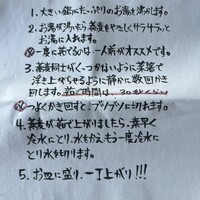 1. 大きい鍋にたっぷりのお湯を沸かします。
2. お湯が沸いたら蕎麦をやさしくサラサラっと
お湯に入れます。
※一度に茹でるのは一人前がオススメです。
3. 蕎麦同士がくっつかないように菜箸で
浮き上がらせるように静かに数回かき
回します。茹で時間は、30秒くらい
※つよくかき回すと、ブツブツに切れます。
4. 蕎麦が茹で上がりましたら、素早く
冷水にとり、水をかえもう一度冷水に
とり水を切ります。
5. お皿に盛り、一丁上がり!!!